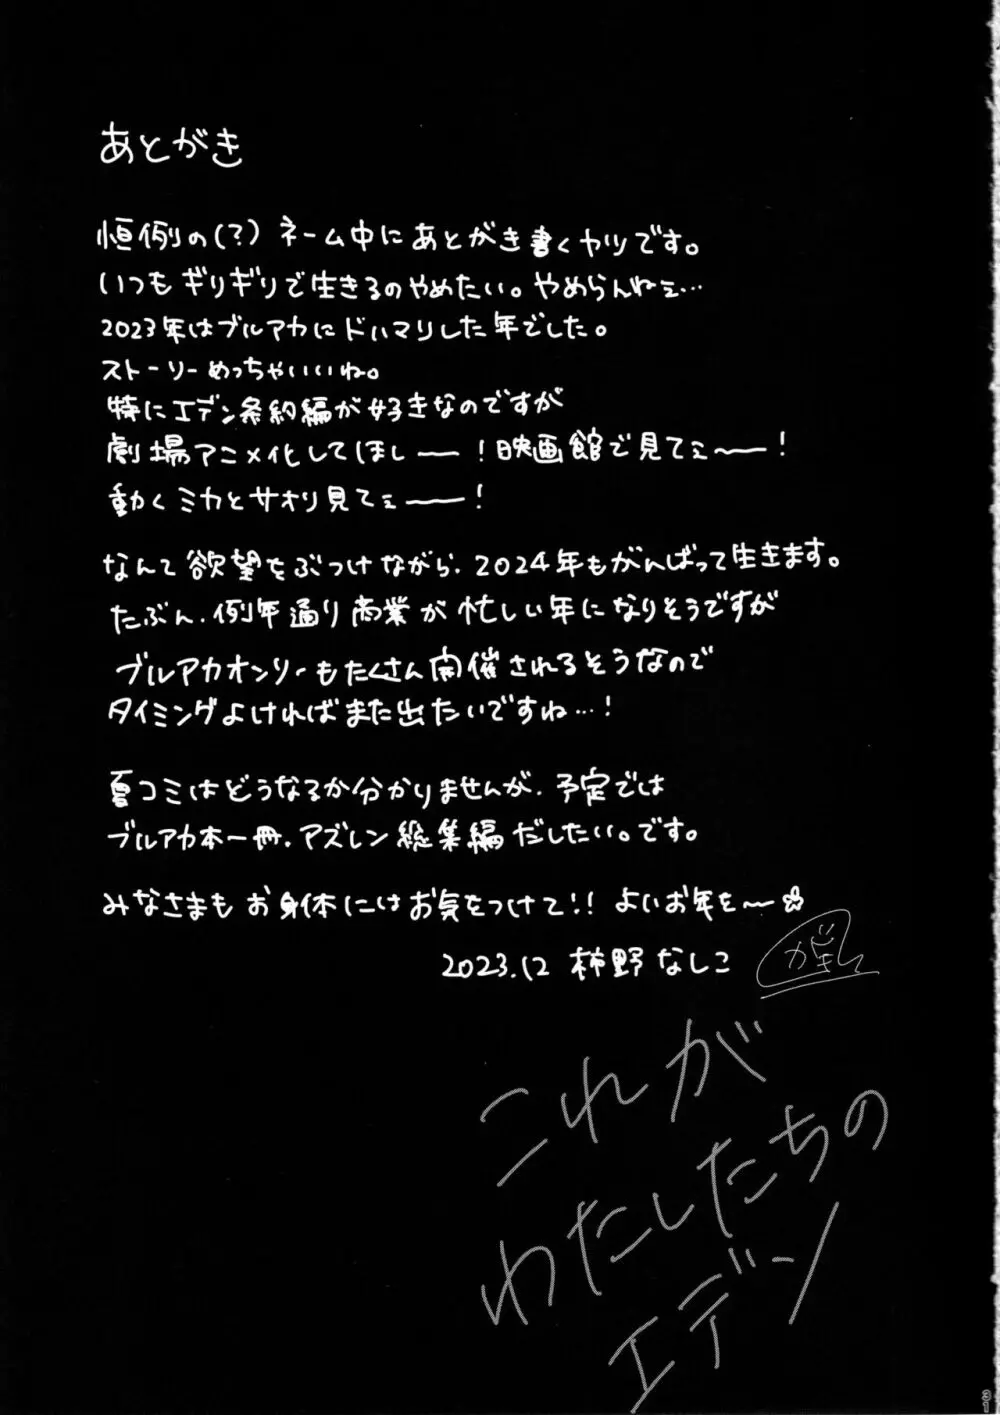 あとがき
恒例の(?)ネーム中にあとがき書くヤツです。
いつもギリギリで生きるのやめたい。やめらんねェ…
2023年はブルアカにドハマりした年でした。
ストーリーめっちゃいいね。
特にエデン条約編が好きなのですが
劇場アニメ化してほしー!映画館で見てェー〜!
動くミカとサオリ見てェー〜!
なんて欲望をぶつけながら、2024年もがんばって生きます。
たぶん、例年通り商業が忙しい年になりそうですが
ブルアカオンリーもたくさん開催されるそうなので
タイミングよければまた出たいですね…!
夏コミはどうなるか分かりませんが、予定では
ブルアカ本一冊、アズレン総集編だしたい。です。
みなさまもお身体にはお気をつけて!!よいお年を〜☆
2023.12 柿野なしこ
これが
わたしたちの
エデン
31